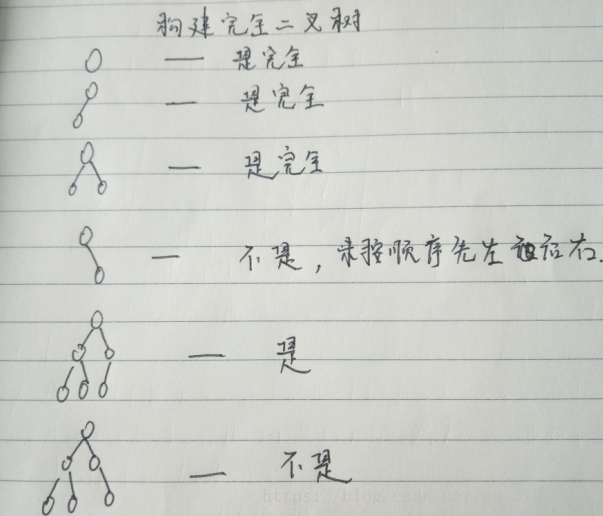 构建完全二叉树
— 是完全
— 是完全
— 是完全
— 不是，未按顺序先左后右.
— 是
— 不是